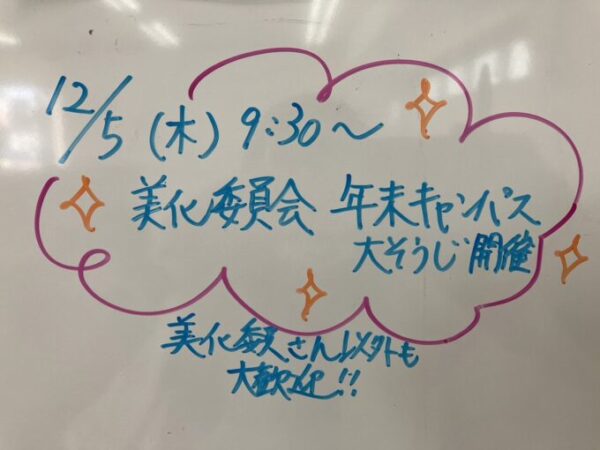 12/5 (木) 9:30～
美化委員会 年末キャンパス
大そうじ開催
美化委員さん以外も
大歓迎!!